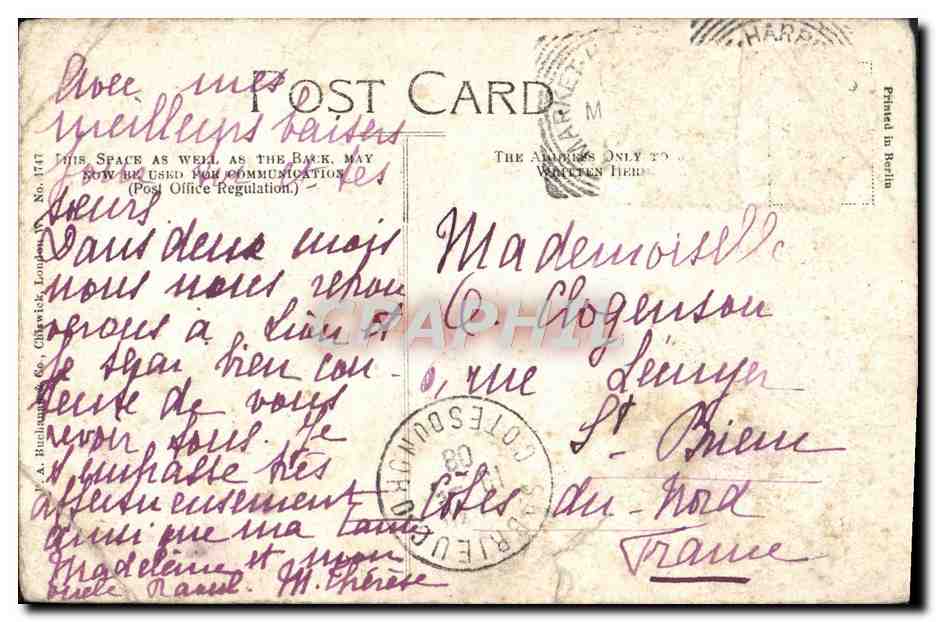 Avec mes
POST CARD
meilleurs baisers
THIS SPACE AS WELL AS THE BACK, MAY
NOW BE USED FOR COMMUNICATION
(Post Office Regulation.)
tes
sœurs
Dans deux mois
nous nous retrou
verons à et
je serai bien con-
tente de vous
revoir tous. Je
t'embrasse très
affectueusement
ainsi que ma tante
Madeleine et mon
oncle Raoul. M. Thérèse
THE ADDRESS ONLY TO
WRITTEN HERE
Mademoiselle
Clogenson
rue
St Brieuc
Côtes du Nord
France
MARKET HARB
M
HARB
ST BRIEUC COTES DU NORD
08
CPARPHIL
Printed in Berlin
A. Buchanan & Co., Chiswick, London, W. No. 1747